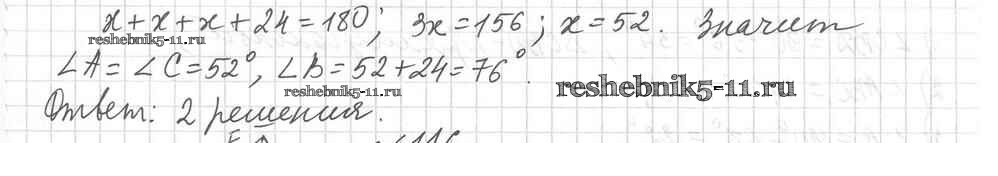 x + x + x + 24 = 180°; 3x = 156; x = 52. Значит
reshebnik5-11.ru
∠A = ∠C = 52°, ∠B = 52 + 24 = 76°.
reshebnik5-11.ru
reshebnik5-11.ru
Ответ: 2 решения.